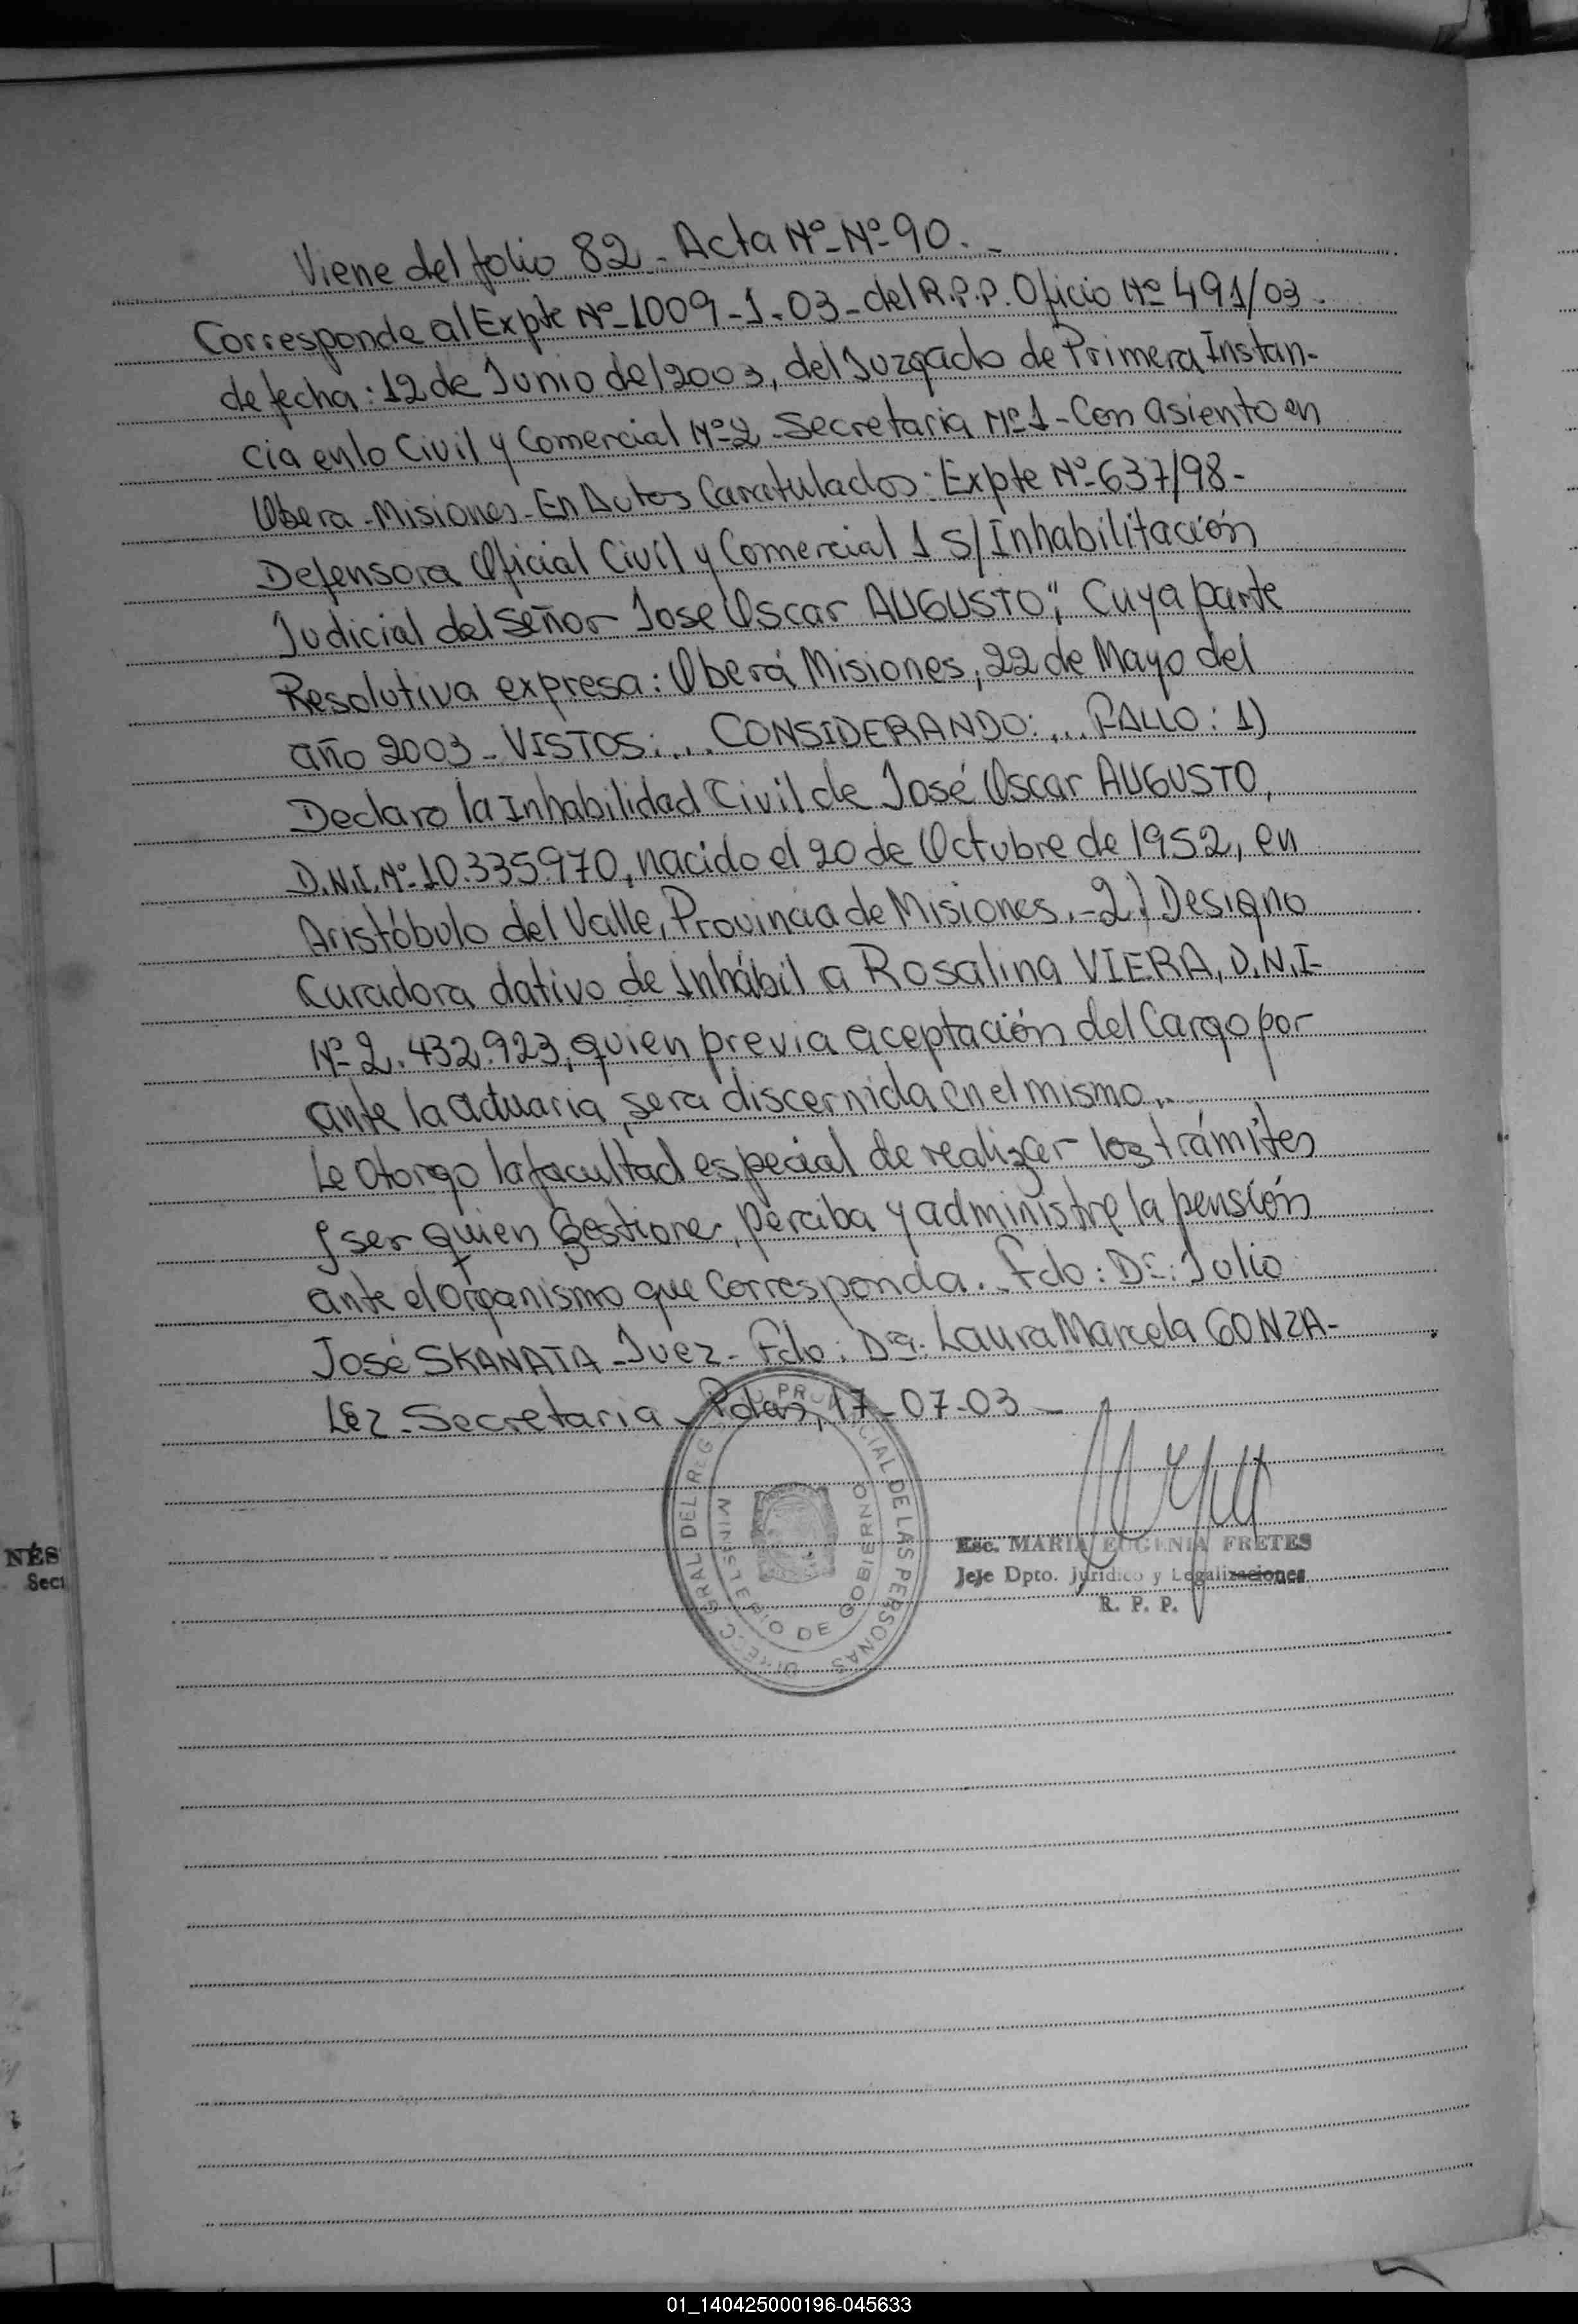 Viene del folio 82 - Acta Nº - Nº - 90. -
Corresponde al Expte Nº - 1009 - 1 - 03 - del R.P.P. Oficio Nº 491/03 -
de fecha: 12 de Junio del 2003, del Juzgado de Primera Instan-
cia en lo Civil y Comercial Nº 2 - Secretaria Nº 1 - Con asiento en
Obera - Misiones - En Autos Caratulados: Expte Nº - 637/98 -
Defensora Oficial Civil y Comercial 1 S/Inhabilitación
Judicial del señor Jose Oscar AUGUSTO", Cuya parte
Resolutiva expresa: Oberá Misiones, 22 de Mayo del
año 2003 - VISTOS: ... CONSIDERANDO: ... FALLO: 1)
Declaro la Inhabilidad Civil de José Oscar AUGUSTO,
D.N.I. Nº - 10.335.970, nacido el 20 de Octubre de 1952, en
Aristóbulo del Valle, Provincia de Misiones. - 2) Designo
Curadora dativo de Inhábil a Rosalina VIERA, D.N.I -
Nº - 2.432.923, quien previa aceptación del Cargo por
ante la actuaria, sera discernida en el mismo. -
Le otorgo la facultad especial de realizar los trámites
y ser quien Gestione, perciba y administre la pensión
ante el organismo que corresponda. Fdo: Dr: Julio
José SKANATA - Juez - Fdo: Dra: Laura Marcela GONZA-
LEZ - Secretaria - Pdas, 17 - 07 - 03 -
DIRECC. GRAL DEL REG PROVINCIAL DE LAS PERSONAS
MINISTERIO DE GOBIERNO
Esc. MARIA EUGENIA FRETES
Jefe Dpto. Jurídico y Legalizaciones
R. P. P.
NÉS
Secr
01_140425000196-045633